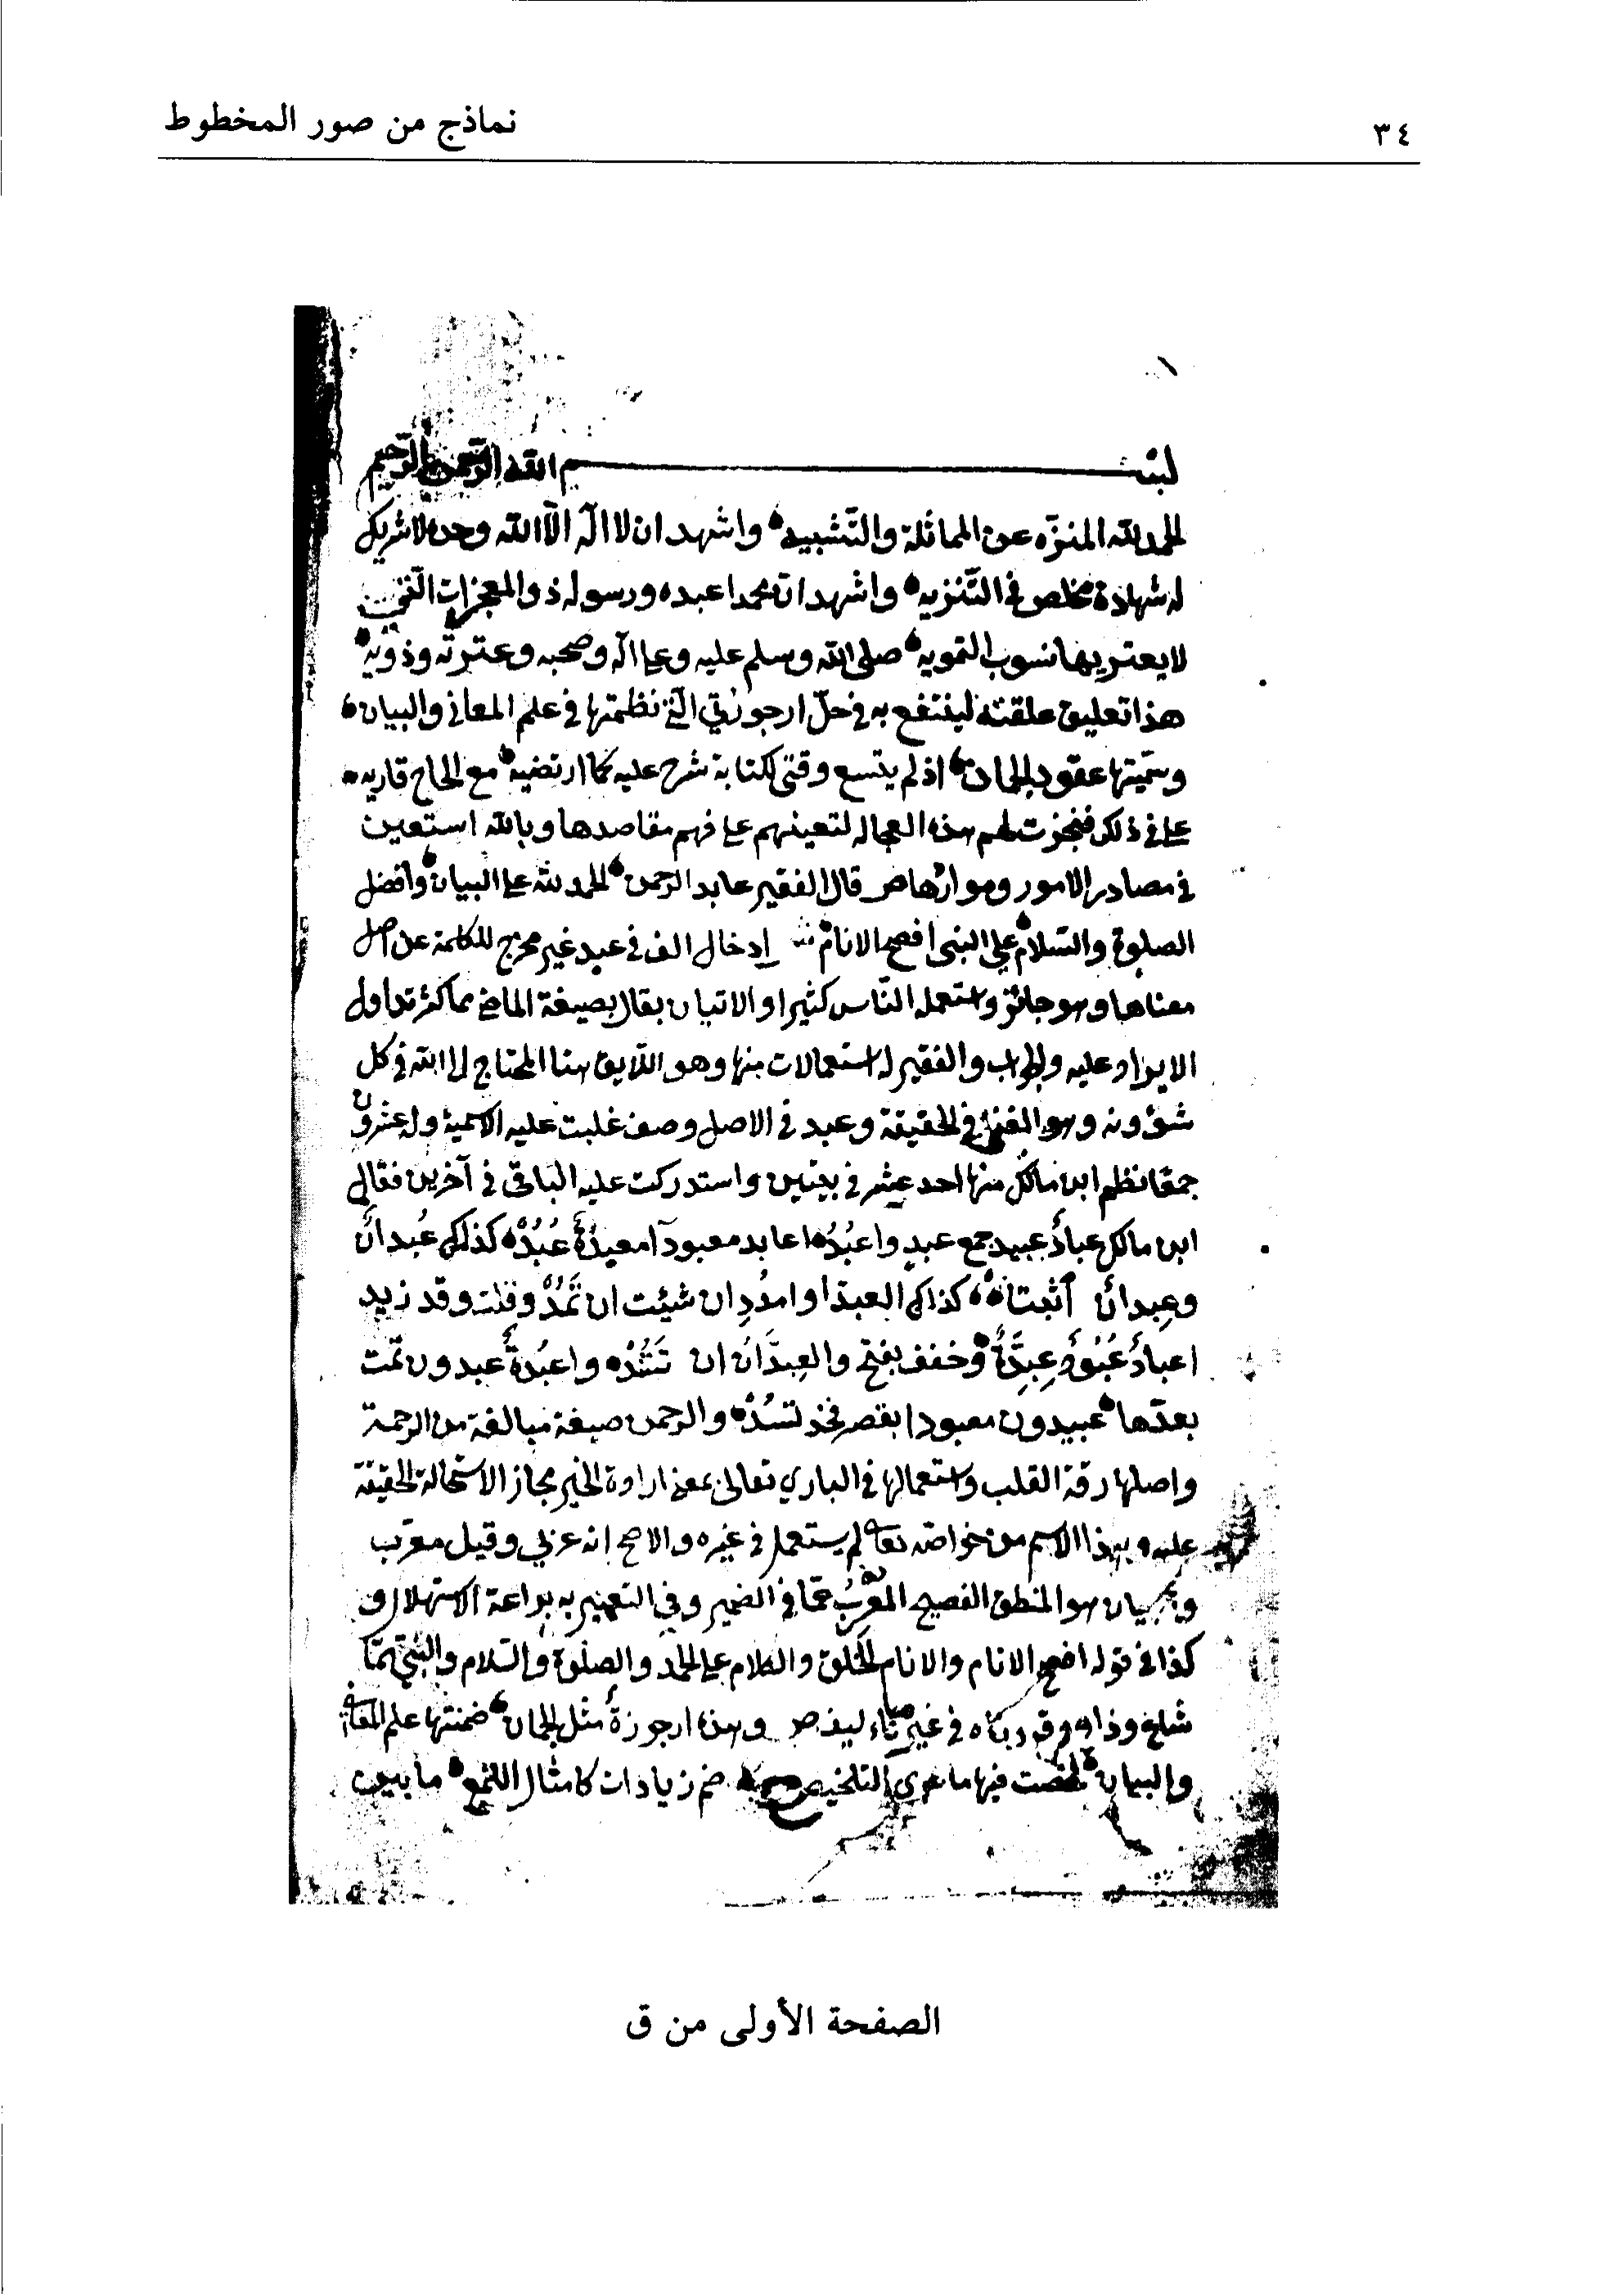 ٣٤
نماذج من صور المخطوط
بسم الله الرحمن الرحيم
الحمد لله المنزه عن المماثلة والتشبيه واشهد ان لا اله الا الله وحده لا شريك
له شهادة مخلص في التنزيه واشهد ان محمدا عبده ورسوله ذو المعجزات التي
لا يعتريها التمويه صلى الله وسلم عليه وعلى اله وصحبه وعترته وذويه
هذا تعليق علقته لينتفع به في حل ارجوزتي التي نظمتها في علم المعاني والبيان
وسميتها عقود الجمان اذ لم يتسع وقتي لكتابة شرح عليه كما ارتضيه مع الحاح قاريه
علي في ذلك فنجزت لهم هذه العجالة لتعينهم على فهم مقاصدها وبالله استعين
في مصادر الامور ومواردها ص قال الفقير عابد الرحمن الحمد لله على البيان وافضل
الصلوة والسلام على النبي افصح الانام ش ادخال الف في عبد غير مخرج للكلمة عن اصل
معناها وهو جائز واستعمله الناس كثيرا والاتيان بقال بصيغة الماضي مما كثر تداول
الايراد عليه والجواب والفقير له استعمالات منها وهو اللايق هنا المحتاج الى الله في كل
شؤونه وهو الفقر في الحقيقة وعبد في الاصل وصف غلبت عليه الاسمية وله عشرون
جمعا نظم ابن مالك منها احد عشر في بيتين واستدركت عليه الباقي في آخرين فقال
ابن مالك عباد عبيد جمع عبد واعبد اعابد معبودآ معبدة عبد كذلك عبدان
وعبدان اثبتا كذاك العبدا وامدد ان شئت ان تمد وقلت وقد زيد
اعباد عبود عبدة وخفف بفتح والعبدان ان تشد واعبدة عبدون تمت
بعدها عبيدون معبودا بقصر فخذ تسد والرحمن صيغة مبالغة من الرحمة
واصلها رقة القلب واستعمالها في الباري تعالى بمعنى ارادة الخير مجاز الاستحالة الحقيقة
عليه وهذا الاسم من خواصه تعالى لم يستعمل في غيره والاصح انه عربي وقيل معرب
والبيان هو المنطق الفصيح المعرب عما في الضمير وفي التعبير به براعة الاستهلال و
كذا في قوله افصح الانام والانام الخلق والكلام على الحمد والصلوة والسلام والنبي مما
شاع وذاع وقد بيناه في غير ليف ص وهذه ارجوزة مثل الجمان ضمنتها علم المعاني
والبيان لخصت فيها ما حوى التلخيص ضم زيادات كامثال اللمع ما بين
الصفحة الأولى من ق